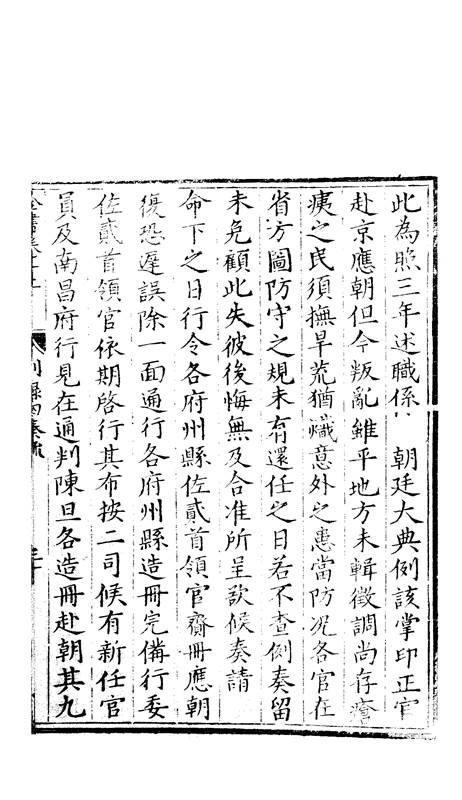 此為照三年述職係 朝廷大典例該掌印正官
赴京應朝但今叛亂雖平地方未輯徵調尚存瘡
痍之民須撫旱荒猶熾意外之患當防况各官在
省方圖防守之規未有還任之日若不查例奏留
未免顧此失彼後悔無及合准所呈欵候奏請
命下之日行令各府州縣佐貳首領官齎冊應朝
復恐遲誤除一面通行各府州縣造冊完備行委
佐貳首領官依期啓行其布按二司候有新任官
員及南昌府行見在通判陳旦各造冊赴朝其九